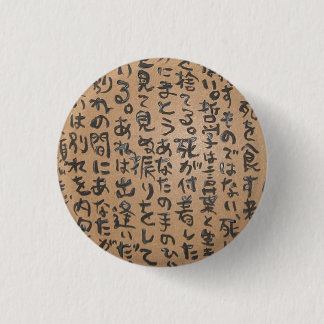 死を食す者
すものではない。死
い。哲学は言葉と生
て捨てる。死が付着した
にまとうあなたの手のひ
と見て見ぬ振りをして
ける。あれは出逢いだ
別れの間にあなたが
いは別れを内包